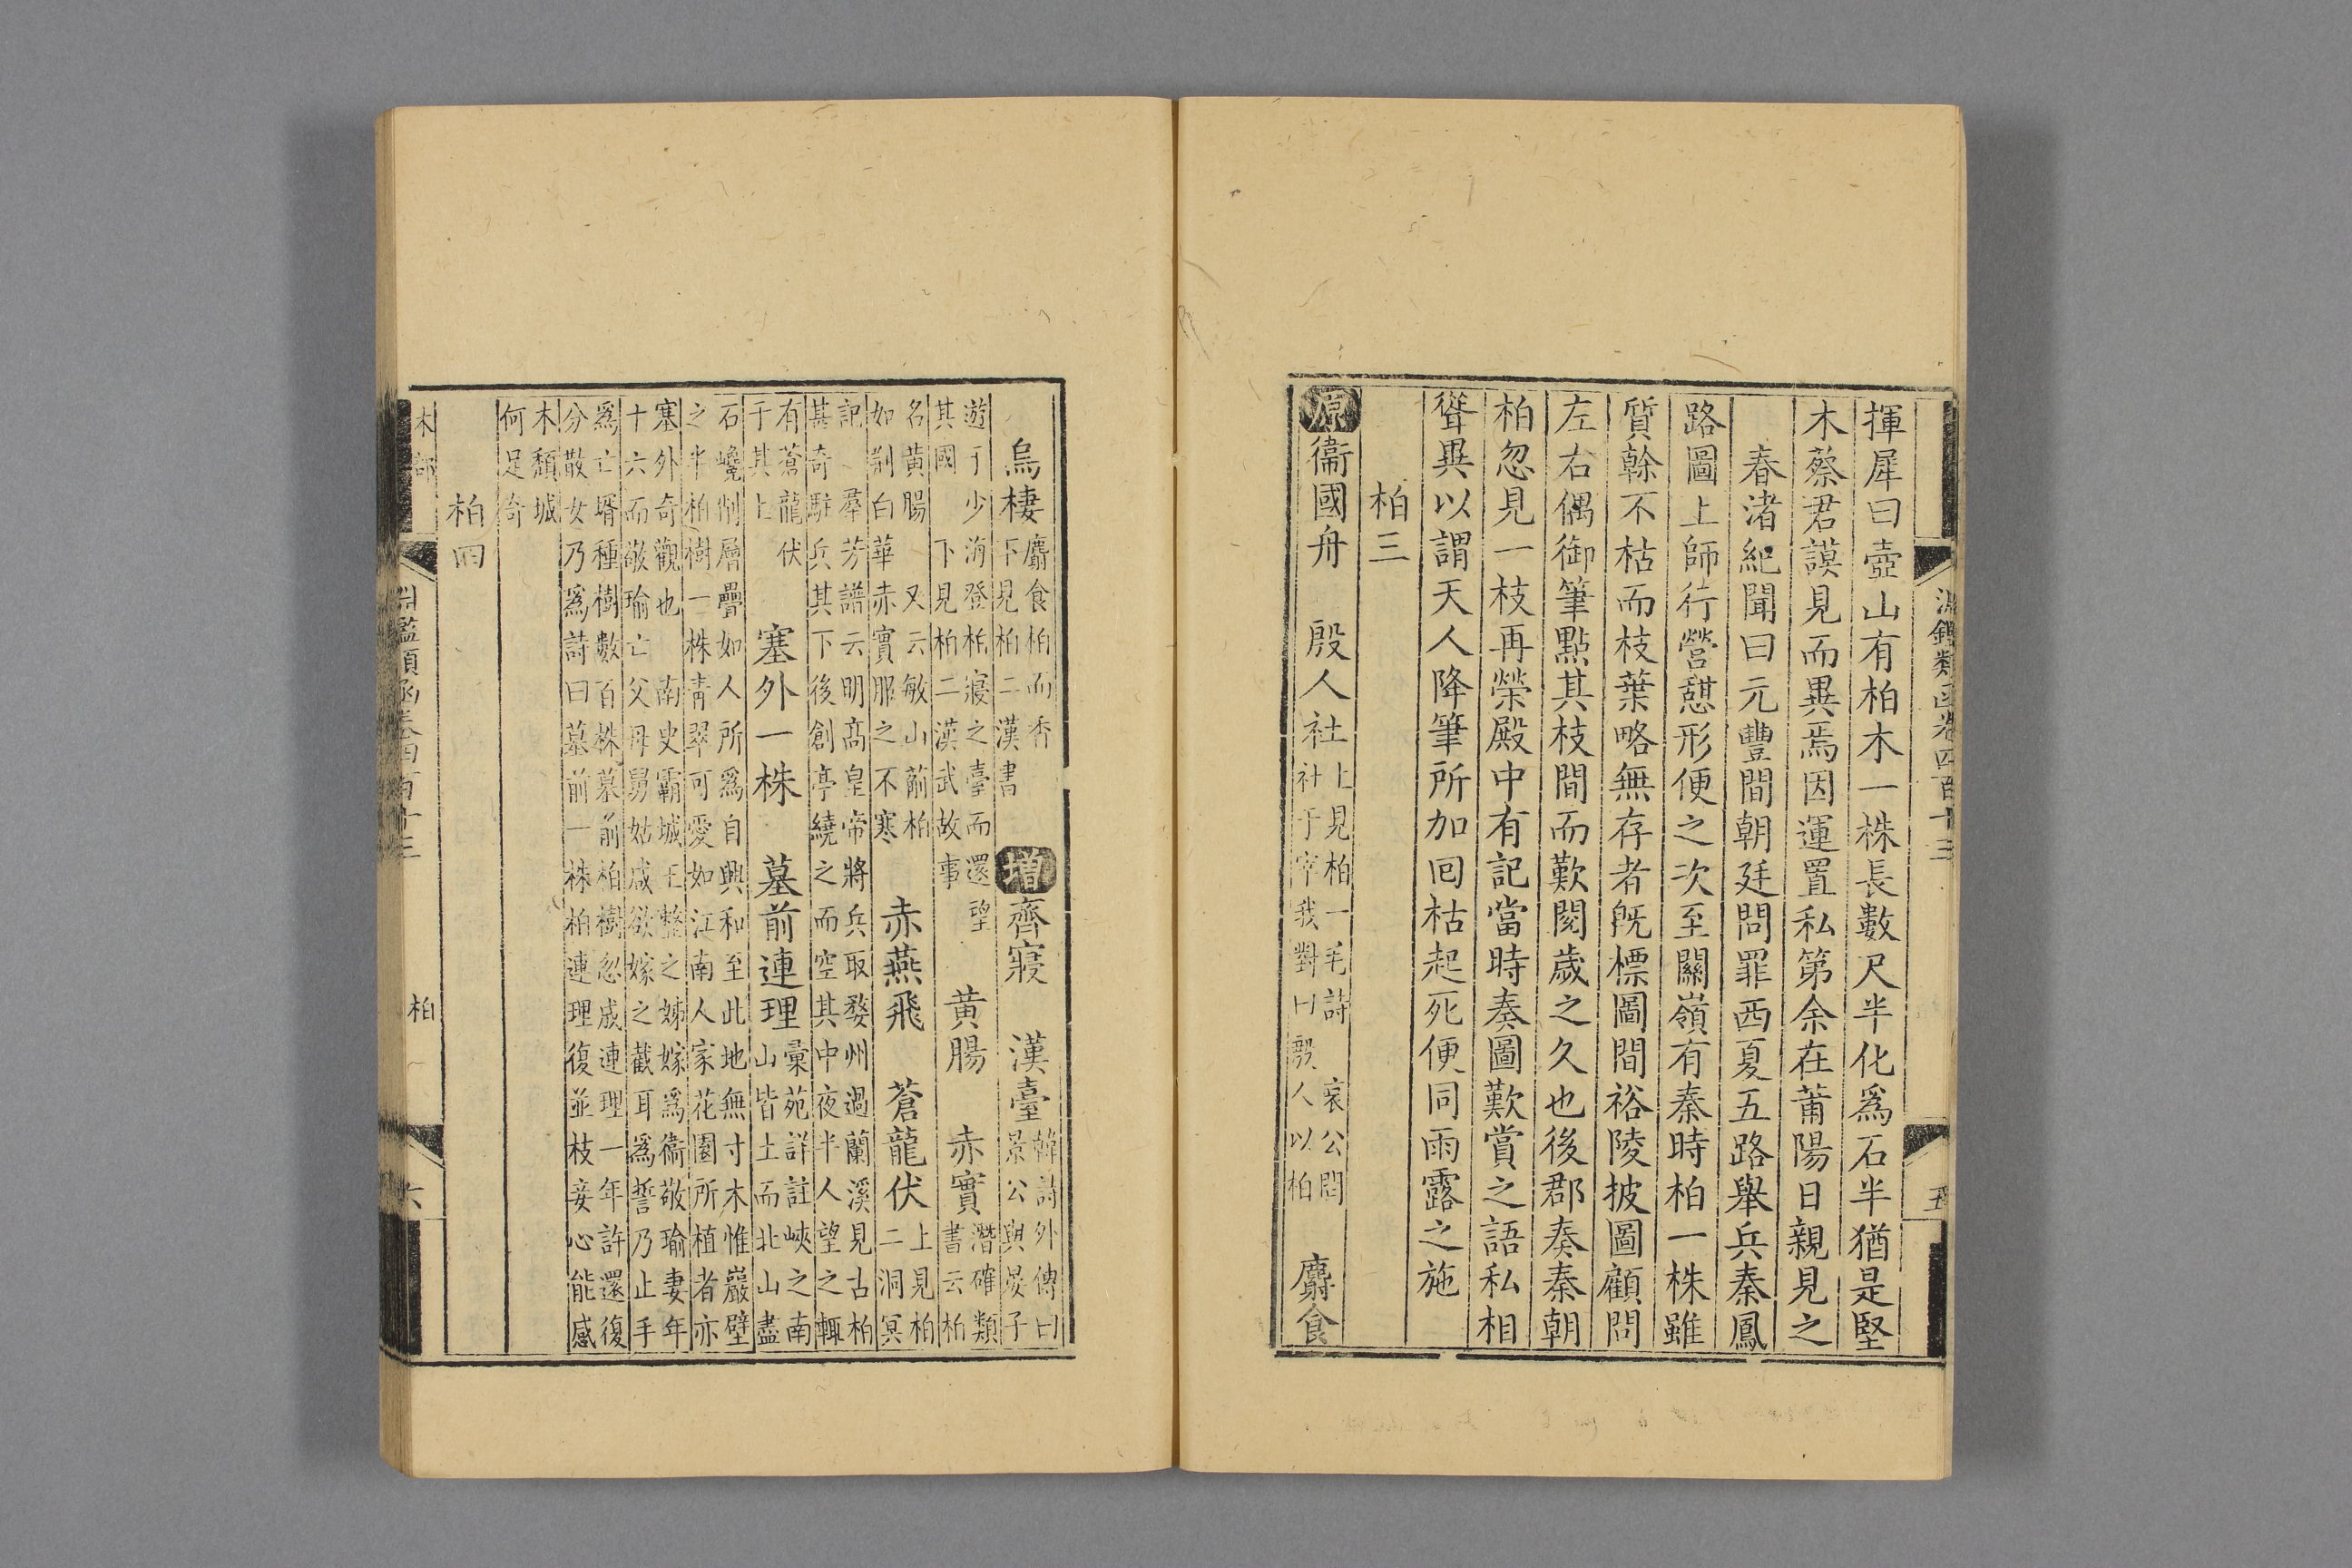 淵鑑類函卷四百十三
五
揮犀曰壺山有柏木一株長數尺半化爲石半猶是堅
木蔡君謨見而異焉因運置私第余在莆陽日親見之
春渚紀聞曰元豐間朝廷問罪西夏五路舉兵秦鳳
路圖上師行營憇形便之次至關嶺有秦時柏一株雖
質榦不枯而枝葉略無存者旣標圖間裕陵披圖顧問
左右偶御筆點其枝間而歎閱歲之久也後郡奏秦朝
柏忽見一枝再榮殿中有記當時奏圖歎賞之語私相
聳異以謂天人降筆所加回枯起死便同雨露之施
柏三
原衞國舟 殷人社上見柏一毛詩 哀公問社于宰我對曰殷人以柏 麝食
烏棲麝食柏而香下見柏二漢書 增齊寢 漢臺韓詩外傳曰景公與晏子
遊于少海登柏寢之臺而還望其國 下見柏二漢武故事 黃腸 赤實潛確類書云柏
名黃腸 又云敏山萷柏如荆白華赤實服之不寒 赤燕飛 蒼龍伏上見柏二洞冥
記 羣芳譜云明髙皇帝將兵取婺州過蘭溪見古柏其奇駐兵其下後創亭繞之而空其中夜半人望之輒
有蒼龍伏于其上 塞外一株 墓前連理彙苑詳註峽之南山皆土而北山盡
石巉削層疊如人所爲自興和至此地無寸木惟巖壁之半柏樹一株靑翠可愛如江南人家花園所植者亦
塞外奇觀也 南史霸城王整之姊嫁爲衞敬瑜妻年十六而敬瑜亡父母舅姑咸欲嫁之截耳爲誓乃止手
爲亡壻種樹數百株墓前柏樹忽成連理一年許還復分散女乃爲詩曰墓前一株柏連理復並枝妾心能感
木頽城何足奇
柏四
木部
淵鑑類函卷四百十三
柏
六